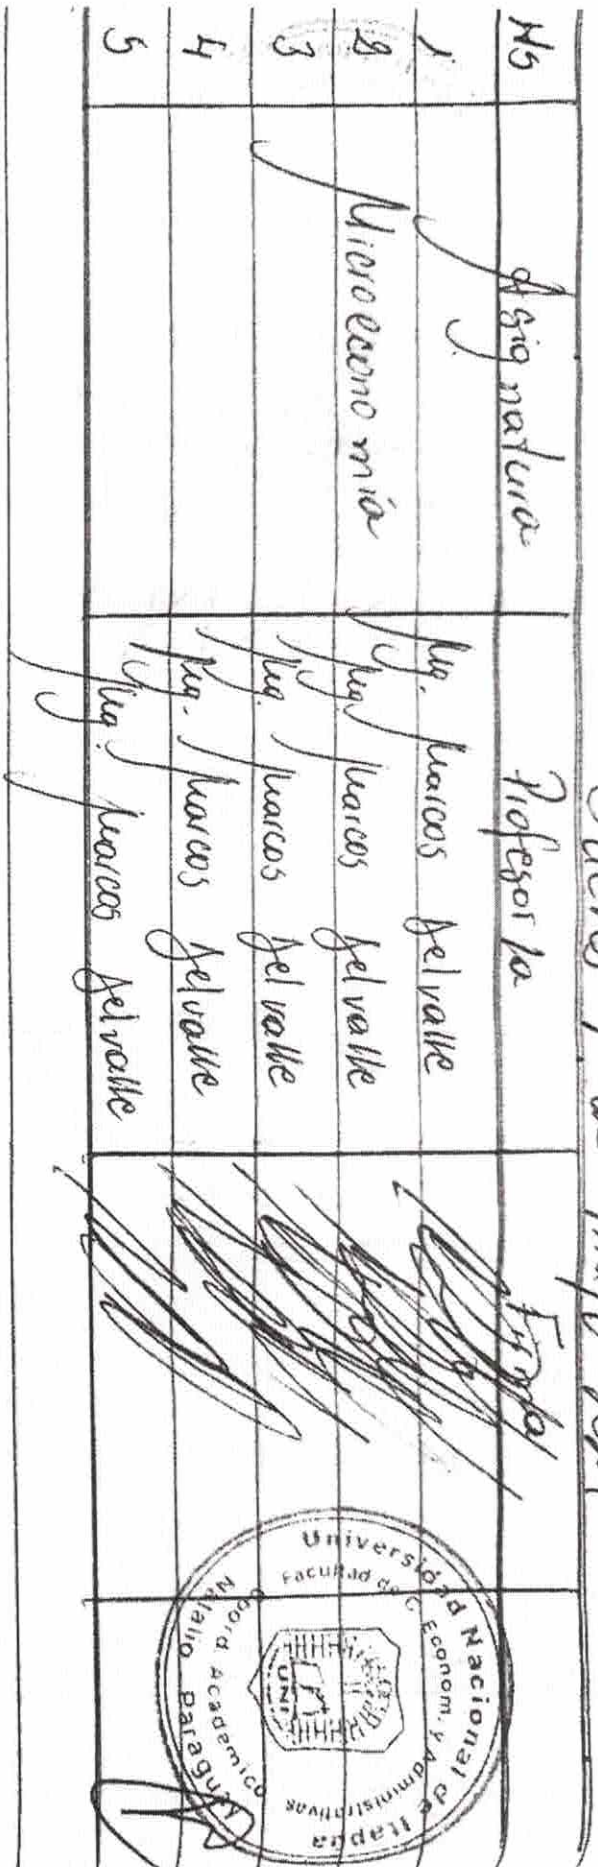 Nº Asignatura Profesor/a Firma
1 Mg. Marcos Delvalle
2 Microeconomía Mg. Marcos Delvalle
3 Mg. Marcos Delvalle
4 Mg. Marcos Delvalle
5 Mg. Marcos Delvalle
Universidad Nacional de Itapúa
Facultad de C. Econom. y Administrativas
UNI
Coord Académico
Natalio Paraguay